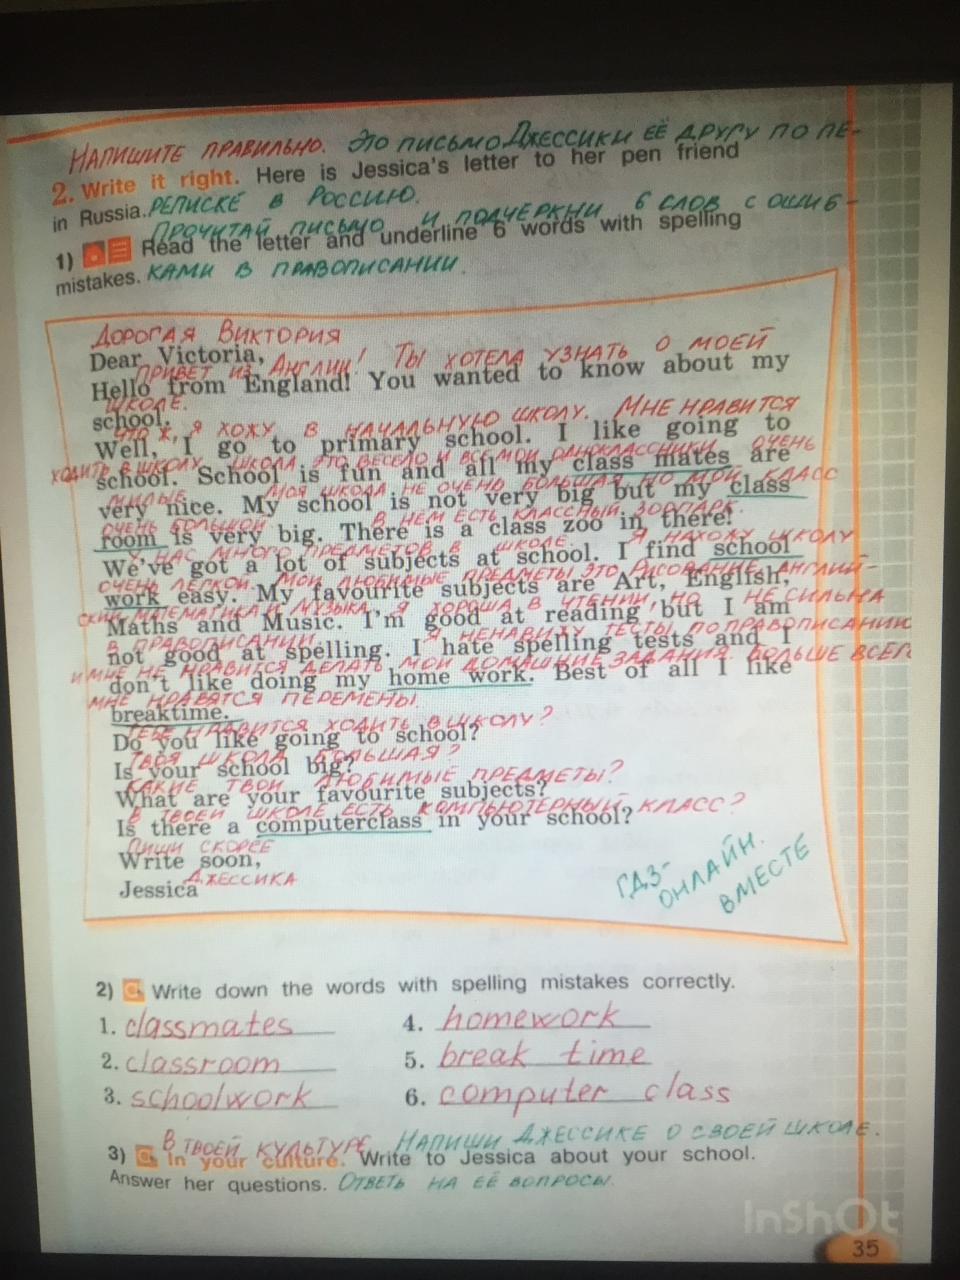 НАПИШИТЕ ПРАВИЛЬНО. ЭТО ПИСЬМО ДЖЕССИКИ ЕЁ ДРУГУ ПО ПЕ-
2. Write it right. Here is Jessica's letter to her pen friend
in Russia. РЕПИСКЕ В РОССИЮ.
ПРОЧИТАЙ ПИСЬМО И ПОДЧЕРКНИ 6 СЛОВ С ОШИБ-
1) Read the letter and underline 6 words with spelling
mistakes. КАМИ В ПРАВОПИСАНИИ.
ДОРОГАЯ ВИКТОРИЯ
Dear Victoria,
ПРИВЕТ ИЗ АНГЛИИ! ТЫ ХОТЕЛА УЗНАТЬ О МОЕЙ
Hello from England! You wanted to know about my
ШКОЛЕ.
school.
ЧТО Ж, Я ХОЖУ В НАЧАЛЬНУЮ ШКОЛУ. МНЕ НРАВИТСЯ
Well, I go to primary school. I like going to
ХОДИТЬ В ШКОЛУ. ШКОЛА ЭТО ВЕСЕЛО И ВСЕ МОИ ОДНОКЛАССНИКИ ОЧЕНЬ
school. School is fun and all my class mates are
МИЛЫЕ. МОЯ ШКОЛА НЕ ОЧЕНЬ БОЛЬШАЯ, НО МОЙ КЛАСС
very nice. My school is not very big but my class
ОЧЕНЬ БОЛЬШОЙ. В НЕМ ЕСТЬ КЛАССНЫЙ ЗООПАРК.
room is very big. There is a class zoo in there!
У НАС МНОГО ПРЕДМЕТОВ В ШКОЛЕ. Я НАХОЖУ ШКОЛУ
We've got a lot of subjects at school. I find school
ОЧЕНЬ ЛЕГКОЙ. МОИ ЛЮБИМЫЕ ПРЕДМЕТЫ ЭТО РИСОВАНИЕ, АНГЛИЙ-
work easy. My favourite subjects are Art, English,
СКИЙ, МАТЕМАТИКА И МУЗЫКА. Я ХОРОША В ЧТЕНИИ, НО НЕ СИЛЬНА
Maths and Music. I'm good at reading but I am
В ПРАВОПИСАНИИ. Я НЕНАВИЖУ ТЕСТЫ ПО ПРАВОПИСАНИЮ
not good at spelling. I hate spelling tests and I
И МНЕ НЕ НРАВИТСЯ ДЕЛАТЬ МОИ ДОМАШНИЕ ЗАДАНИЯ. БОЛЬШЕ ВСЕГО
don't like doing my home work. Best of all I like
МНЕ НРАВЯТСЯ ПЕРЕМЕНЫ.
breaktime.
ТЕБЕ НРАВИТСЯ ХОДИТЬ В ШКОЛУ?
Do you like going to school?
ТВОЯ ШКОЛА БОЛЬШАЯ?
Is your school big?
КАКИЕ ТВОИ ЛЮБИМЫЕ ПРЕДМЕТЫ?
What are your favourite subjects?
В ТВОЕЙ ШКОЛЕ ЕСТЬ КОМПЬЮТЕРНЫЙ КЛАСС?
Is there a computerclass in your school?
ПИШИ СКОРЕЕ
Write soon,
ДЖЕССИКА
Jessica
ГДЗ-
ОНЛАЙН.
ВМЕСТЕ
2) Write down the words with spelling mistakes correctly.
1. classmates 4. homework
2. classroom 5. break time
3. schoolwork 6. computer class
В ТВОЕЙ КУЛЬТУРЕ. НАПИШИ ДЖЕССИКЕ О СВОЕЙ ШКОЛЕ.
3) In your culture. Write to Jessica about your school.
Answer her questions. ОТВЕТЬ НА ЕЁ ВОПРОСЫ.
InShOt
35